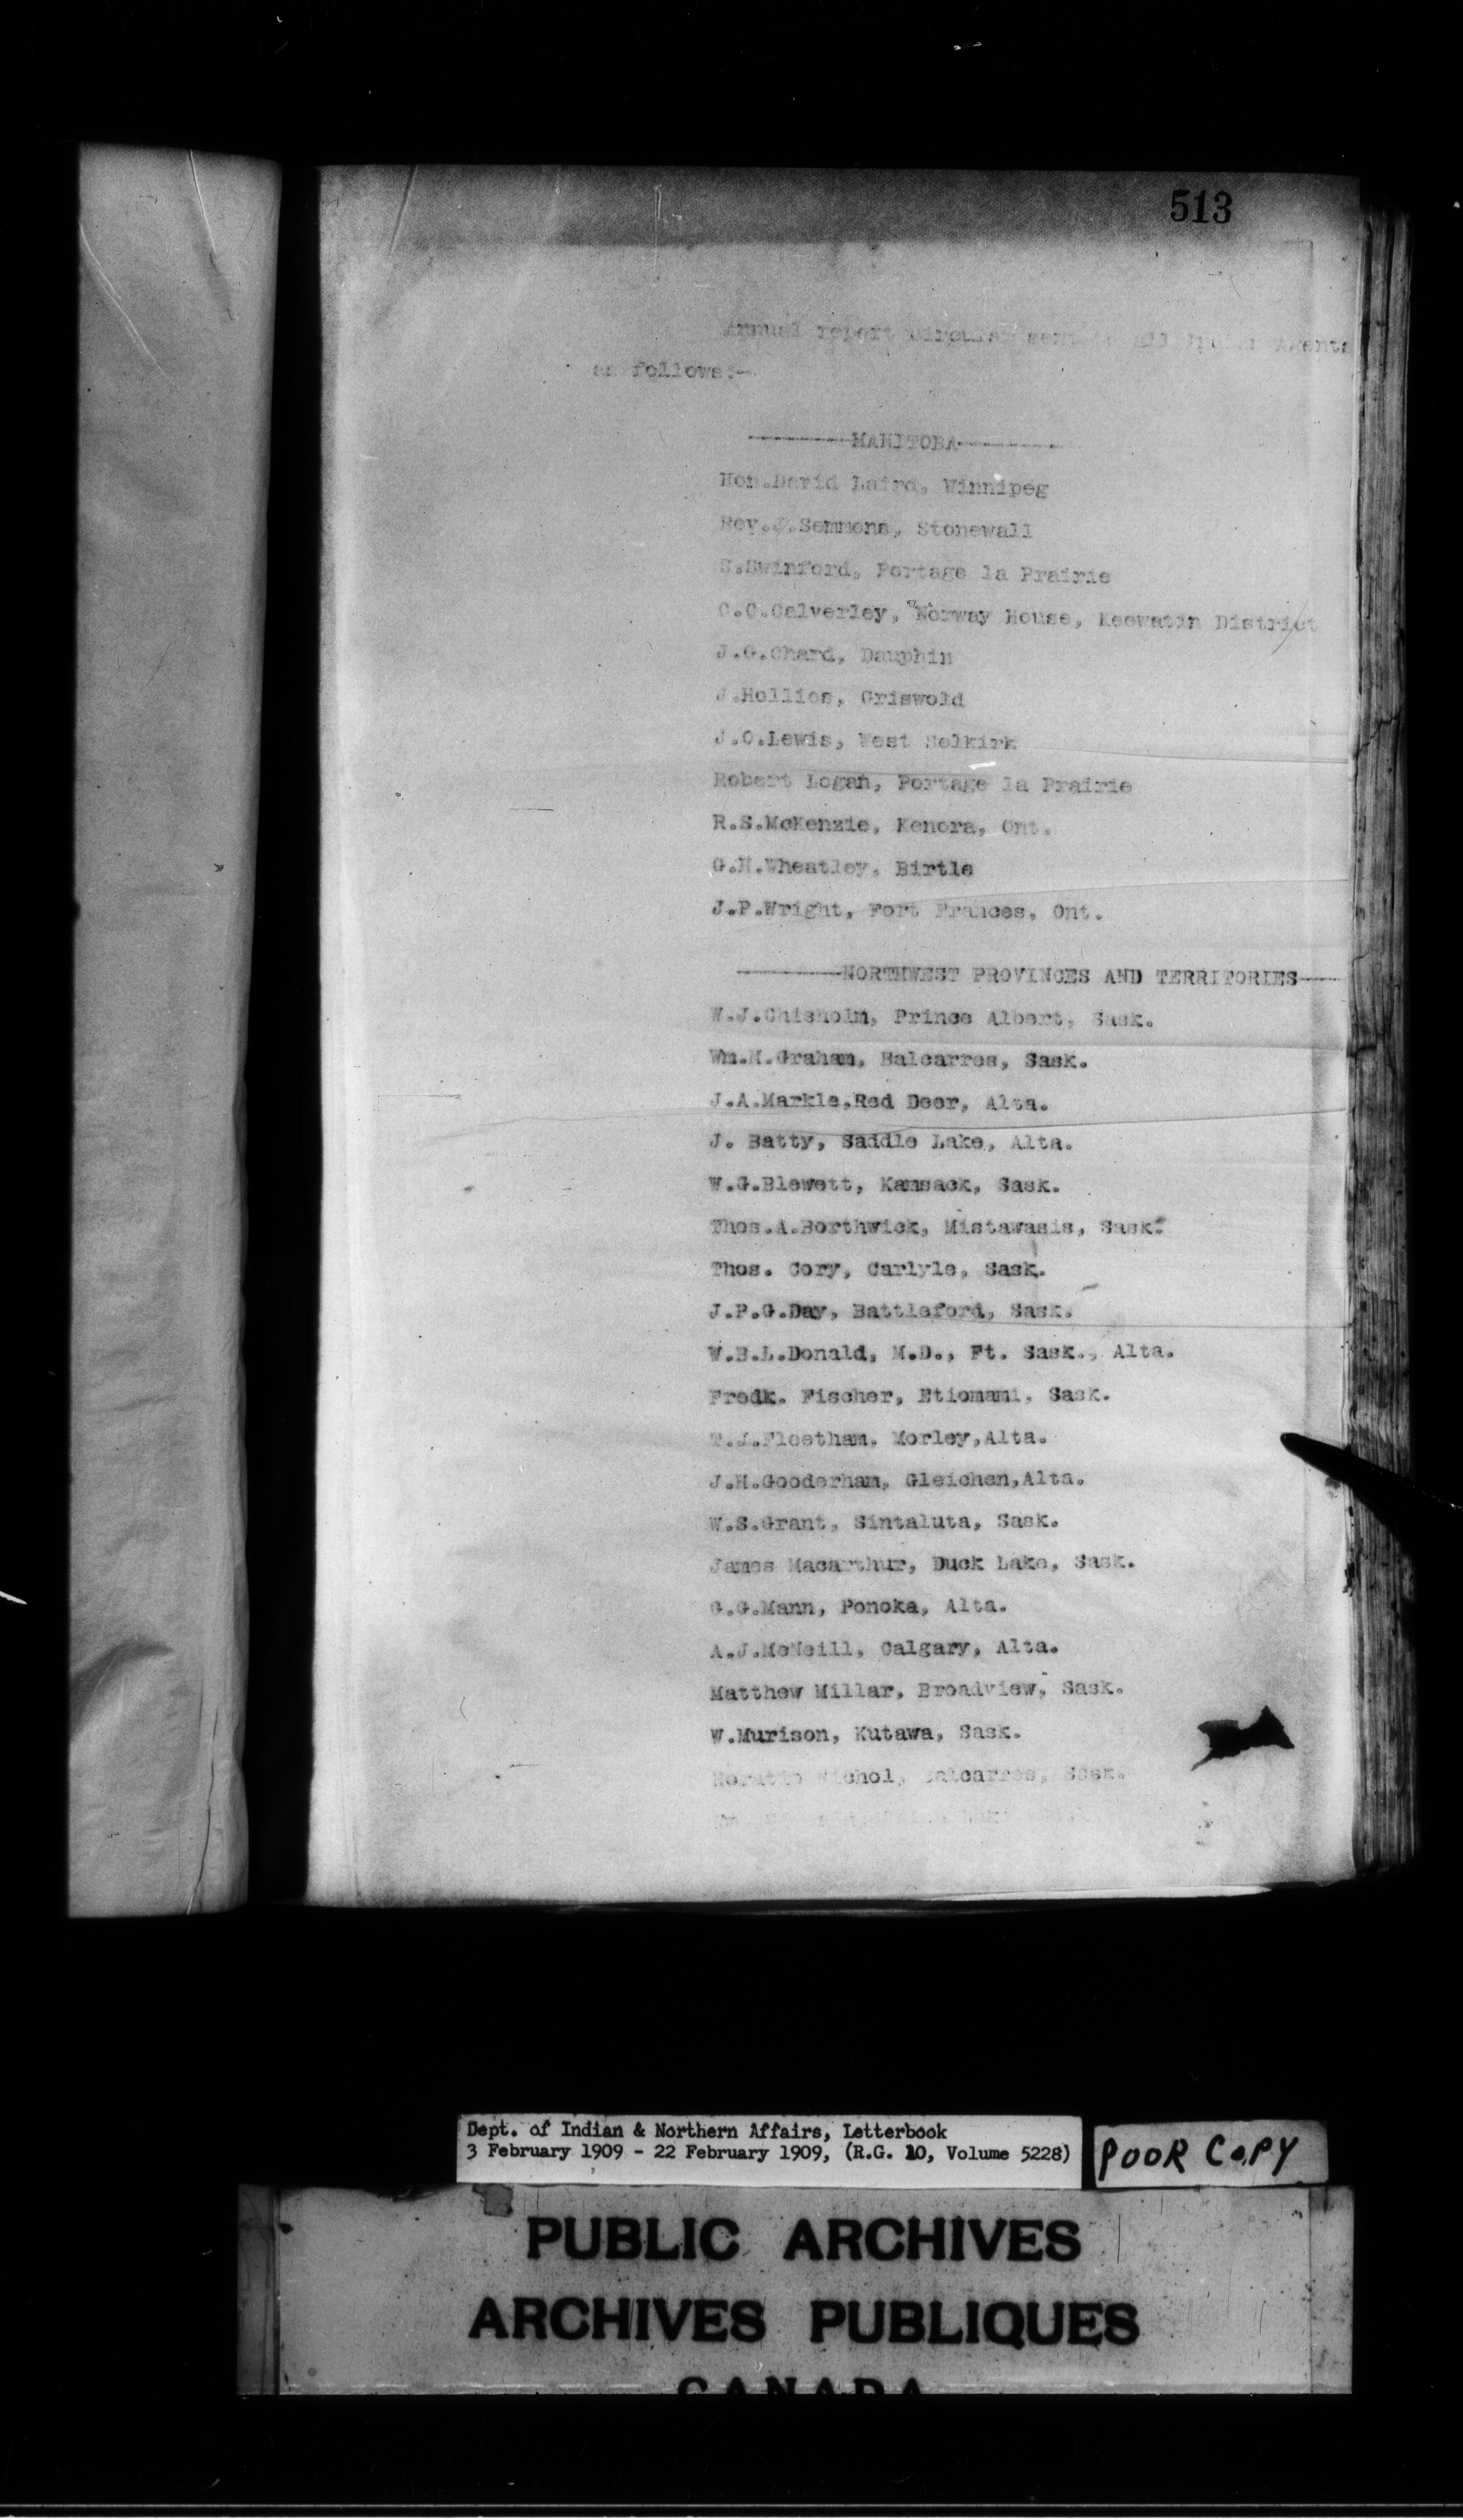 513
Annual report circular sent to all Indian Agents
as follows:-
---------MANITOBA---------
Hon.David Laird, Winnipeg
Rev.J.Semmens, Stonewall
S.Swinford, Portage la Prairie
C.C.Calverley, Norway House, Keewatin District
J.G.Chard, Dauphin
J.Hollies, Griswold
J.O.Lewis, West Selkirk
Robert Logan, Portage la Prairie
R.S.McKenzie, Kenora, Ont.
G.H.Wheatley, Birtle
J.P.Wright, Fort Frances, Ont.
---------NORTHWEST PROVINCES AND TERRITORIES----
W.J.Chisholm, Prince Albert, Sask.
Wm.M.Graham, Balcarres, Sask.
J.A.Markle,Red Deer, Alta.
J. Batty, Saddle Lake, Alta.
W.G.Blewett, Kamsack, Sask.
Thos.A.Borthwick, Mistawasis, Sask.
Thos. Cory, Carlyle, Sask.
J.P.G.Day, Battleford, Sask.
W.B.L.Donald, M.D., Ft. Sask., Alta.
Fredk. Fischer, Etiomami, Sask.
T.J.Fleetham, Morley,Alta.
J.H.Gooderham, Gleichen,Alta.
W.S.Grant, Sintaluta, Sask.
James Macarthur, Duck Lake, Sask.
G.G.Mann, Ponoka, Alta.
A.J.McNeill, Calgary, Alta.
Matthew Millar, Broadview, Sask.
W.Murison, Kutawa, Sask.
Horatio Nichol, Balcarres, Sask.
Dept. of Indian & Northern Affairs, Letterbook
3 February 1909 - 22 February 1909, (R.G. 10, Volume 5228)
POOR COPY
PUBLIC ARCHIVES
ARCHIVES PUBLIQUES
CANADA